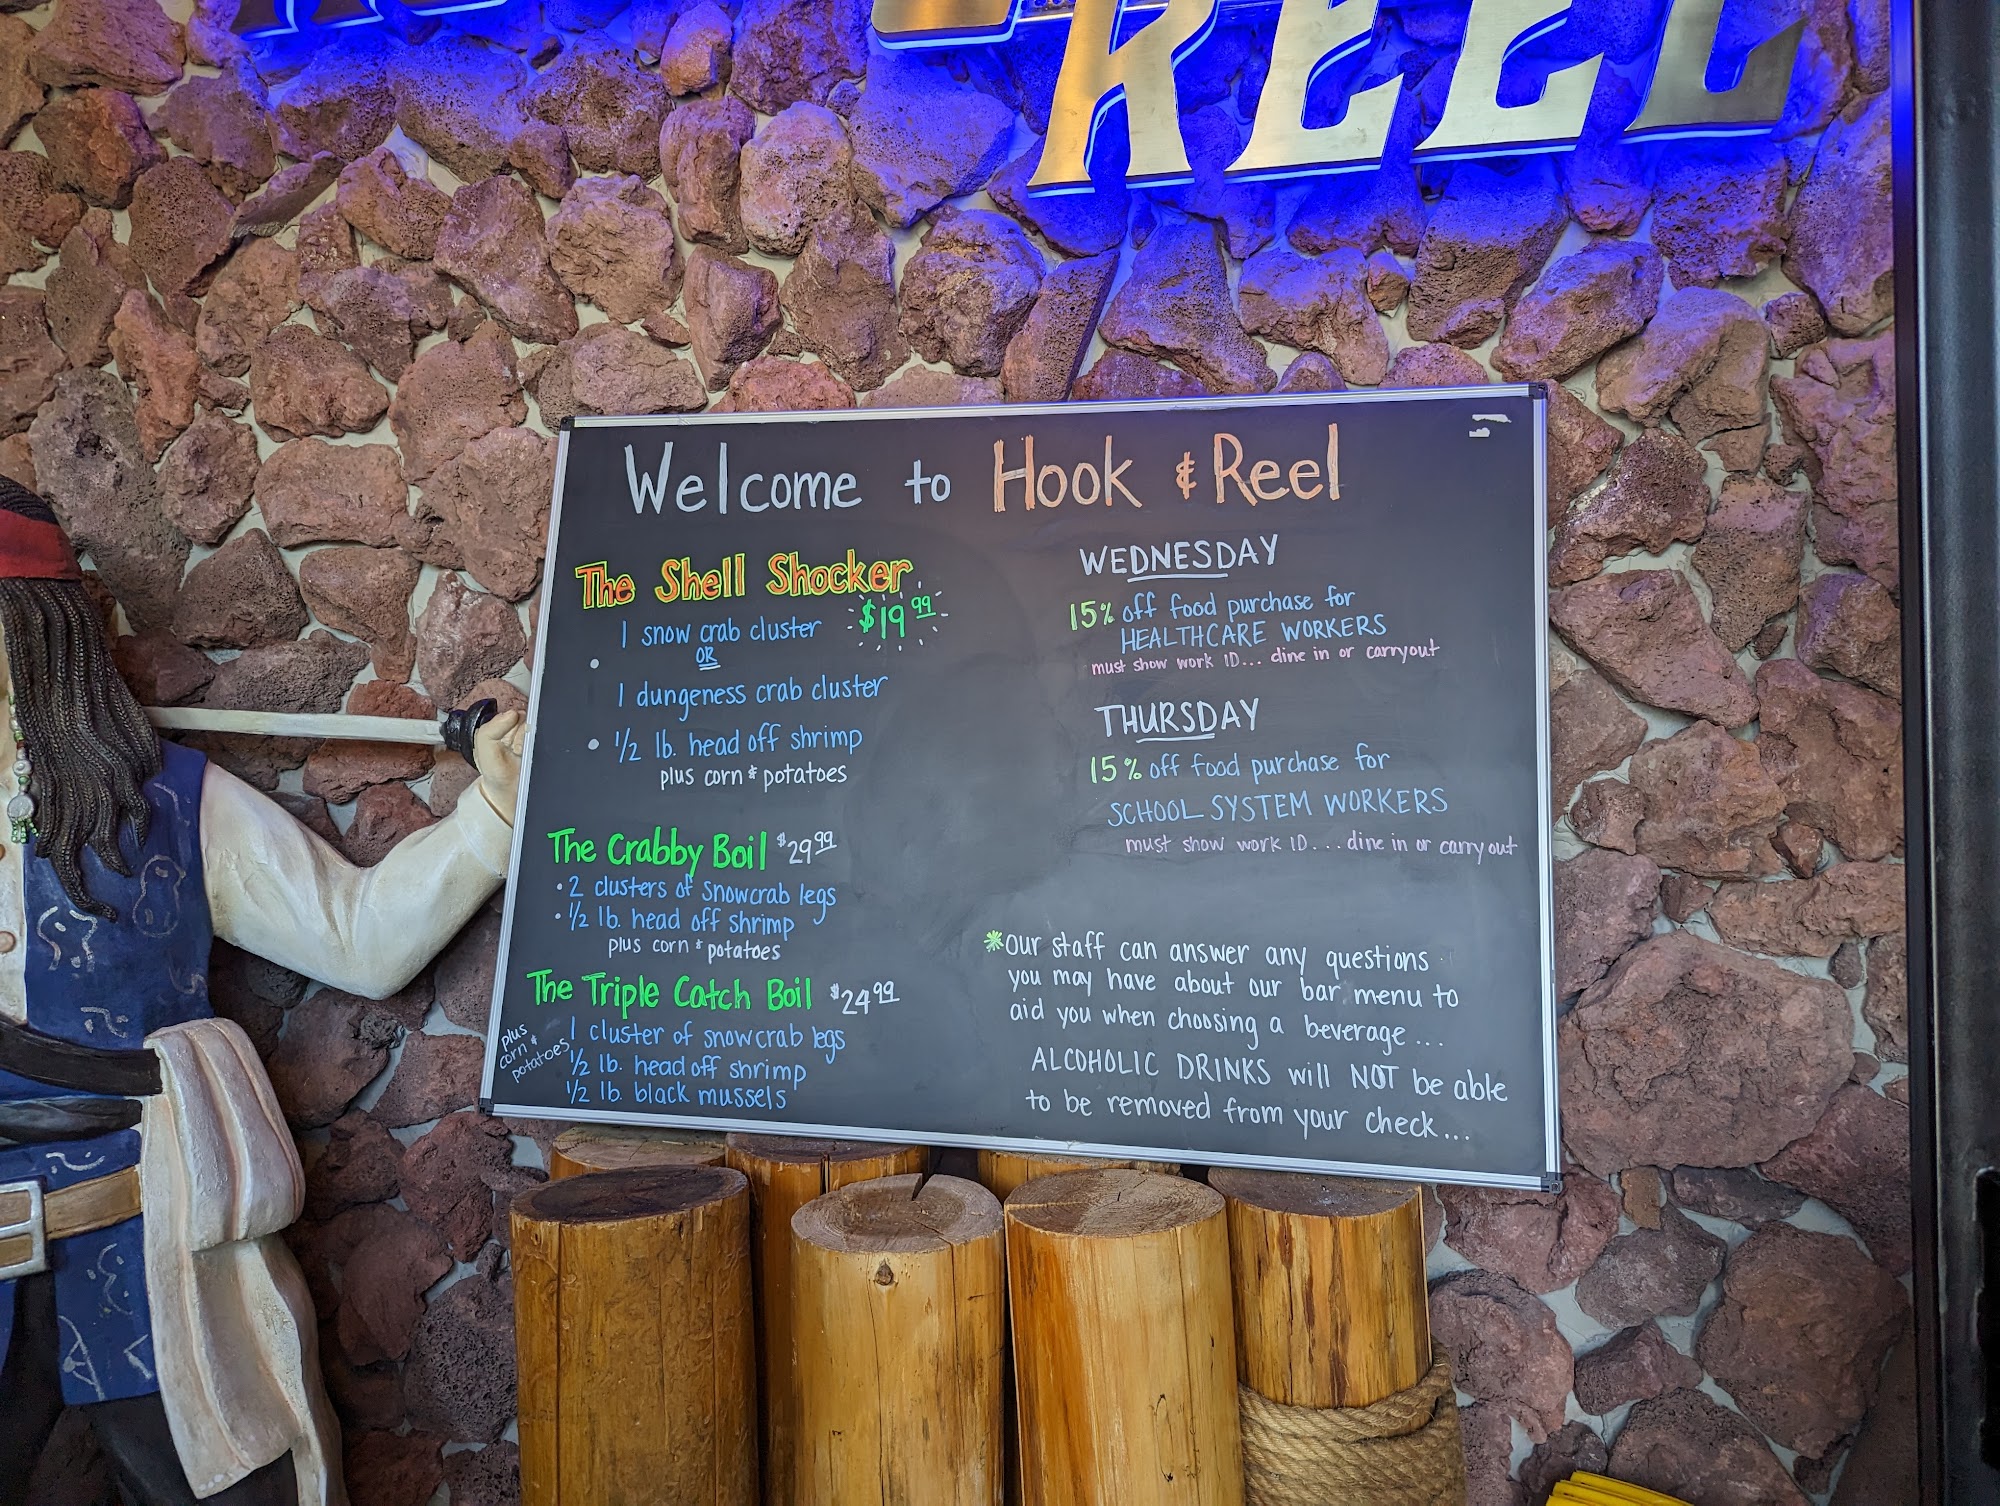 REEL
Welcome to Hook & Reel
The Shell Shocker
$19.99
1 snow crab cluster
OR
1 dungeness crab cluster
• 1/2 lb. head off shrimp
plus corn & potatoes
The Crabby Boil $29.99
• 2 clusters of snowcrab legs
• 1/2 lb. head off shrimp
plus corn & potatoes
The Triple Catch Boil $24.99
plus
corn &
potatoes
1 cluster of snowcrab legs
1/2 lb. head off shrimp
1/2 lb. black mussels
WEDNESDAY
15% off food purchase for
HEALTHCARE WORKERS
must show work ID... dine in or carryout
THURSDAY
15% off food purchase for
SCHOOL SYSTEM WORKERS
must show work ID... dine in or carry out
*our staff can answer any questions
you may have about our bar menu to
aid you when choosing a beverage...
ALCOHOLIC DRINKS will NOT be able
to be removed from your check...